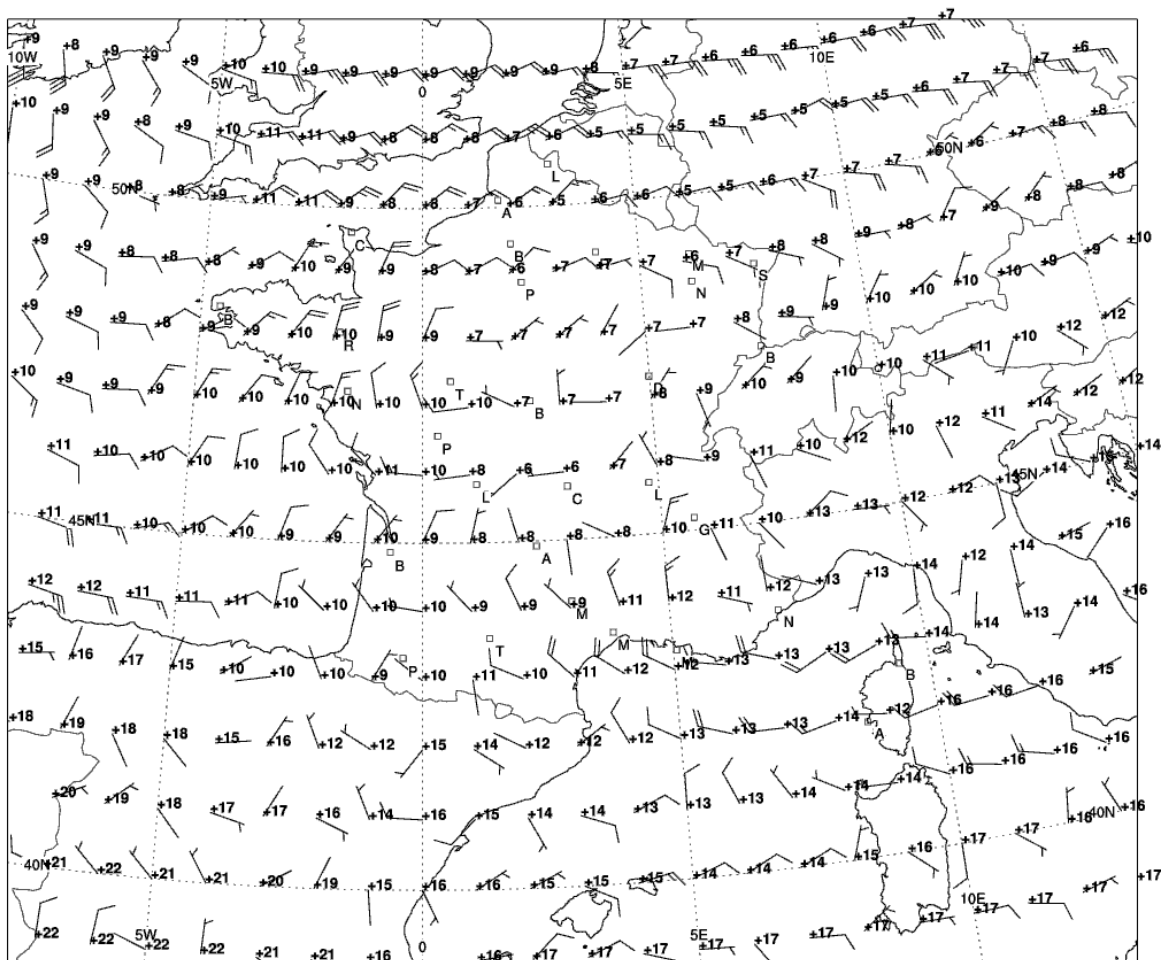 +9 +8 +9 +9 +9 +10 +10 +9 +9 +9 +9 +9 +9 +9 +8 +7 +7 +6 +6 +6 +6 +6 +7 +7
10W 5W 0 5E 10E
+10 +9 +9 +8 +9 +10 +11 +11 +9 +8 +8 +8 +7 +6 +5 +5 +5 +5 +5 +5 +5 +5 +6 +7 +7 +7 +6
L
+9 +9 +8 +8 +9 +11 +11 +9 +8 +8 +7 +6 +5 +6 +6 +5 +5 +6 +7 +7 +7 +6 +7 +8 +8
50N 50N
A
+9 +9 +8 +8 +8 +9 +10 +9 +9 +8 +7 +6 +7 +7 +7 +6 +7 +8 +8 +9 +8 +7 +9 +8 +8 +8
C B M S
P N
+9 +9 +9 +8 +9 +9 +10 +10 +9 +9 +7 +7 +7 +7 +7 +7 +8 +9 +9 +10 +10 +10 +10 +9 +9 +10
B R B
+10 +9 +9 +9 +10 +10 +10 +10 +10 +10 +10 +7 +7 +7 +8 +9 +10 +9 +10 +10 +11 +11 +10 +12 +12
N T B D
+11 +10 +10 +10 +10 +10 +10 +11 +10 +8 +6 +6 +7 +8 +9 +11 +10 +12 +10 +12 +11 +14 +12 +12
P L C L
+11 +11 +10 +10 +10 +9 +9 +10 +9 +8 +8 +8 +8 +10 +11 +10 +13 +13 +12 +12 +13 +14 +16 +14
45N 45N
B A G
+12 +12 +11 +11 +11 +10 +10 +10 +10 +9 +9 +9 +11 +12 +11 +12 +13 +13 +14 +12 +14 +15 +16
M N
+15 +16 +17 +15 +10 +10 +10 +9 +10 +11 +10 +11 +12 +12 +13 +13 +13 +13 +14 +14 +13 +14 +16
P T M M B
+18 +19 +18 +18 +15 +16 +12 +12 +15 +14 +12 +12 +12 +13 +13 +13 +14 +12 +16 +16 +16 +15
A
+20 +19 +18 +17 +17 +16 +14 +16 +15 +14 +14 +13 +13 +13 +14 +14 +14 +16 +16 +16 +16
+21 +22 +21 +21 +20 +19 +15 +16 +16 +15 +15 +15 +14 +14 +14 +15 +16 +17 +17 +16 +16
40N 40N
+22 +22 +22 +22 +21 +21 +16 +16 +16 +17 +17 +17 +17 +17 +17 +17 +17 +17 +17
5W 0 5E 10E